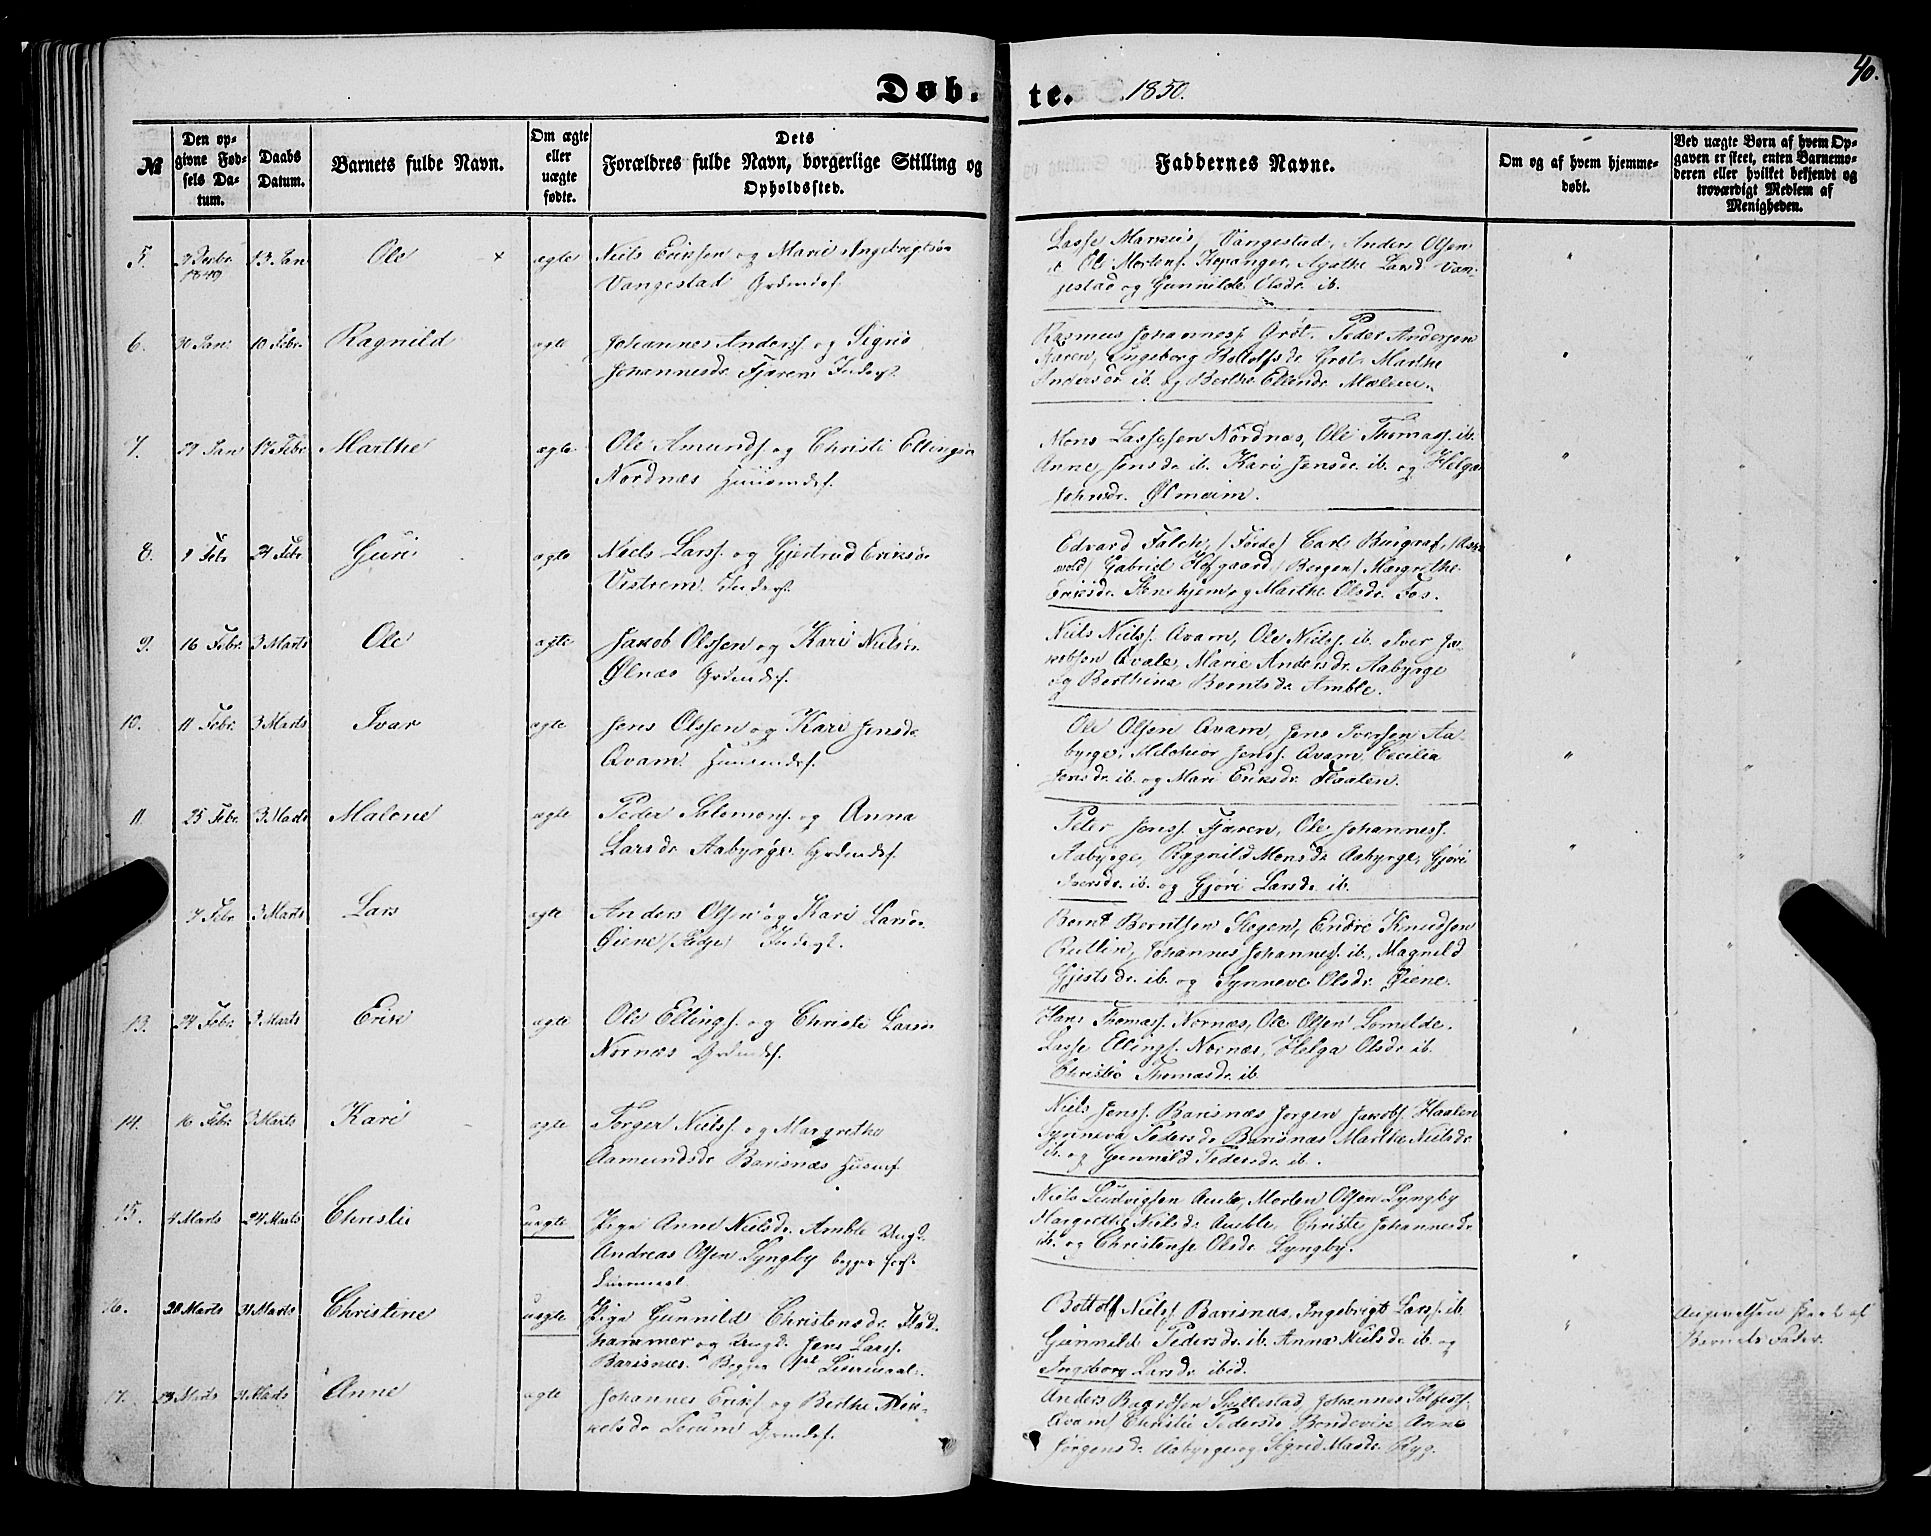 40.
Døb- te. 1850.
№
Den op-
givne Fød-
sels Da-
tum.
Daabs
Datum.
Barnets fulde Navn.
Om ægte
eller
uægte
fødte.
Dets
Forældres fulde Navn, borgerlige Stilling og
Opholdssted.
Faddernes Navne.
Om og af hvem hjemme-
døbt.
Ved uægte Børn af hvem Op-
gaven er skeet, enten Barnemo-
deren eller hvilket bekjendt og
troværdigt Medlem af
Menigheden.
5. 1849 13 Jan Ole ægte Niels Eriksen og Marie Ingebrigtsdr
Vangestad Grdmdsf.
Lasse Vangestad, Anders Olsen
Ole Mortens. Kopanger, Agathe Larsd Van-
gestad og Gunnilde Olsdr ib.
6. 30 Jan 10 Febr. Ragnild ægte Johannes Anderss og Signe
Johannesdr Fjæren Inderst.
Rasmus Johanness Grøt. Peder Andersen
Fjæren, Ingeborg Bottolfsdr Grøt, Marthe
Andersdr ib. og Berthe
7. 27 Jan 17 Febr Marthe ægte Ole Amunds. og Christi Ellingsdr
Nordnæs Huusmdsf.
Mons Lassesen Nordnæs, Ole Thomass. ib.
Anne Jensdr ib. Kari Jensdr. ib. og Helga
Johnsdr. Ølmeim.
8. 9 Febr 24 Febr Guri ægte Niels Larss. og Gjertrud Eriksdr
Vestrem. Inderst.
Edvard Falch, (Førde) Carl Burgraf, (Ask-
vold) Gabriel Hofgaard (Bergen) Margrethe
Eriksdr. Stenehjem og Marthe Olsdr. Fos.
9. 16 Febr. 3 Marts Ole ægte Jakob Olssen og Kari Nielsdr
Ølnæs Grdmdsf.
Niels Nielss. Qvam, Ole Nielss. ib. Iver Ja-
kobsen Qvale, Marie Andersdr. Aabyrge
og Berthine Berntsdr Amble.
10. 11 Febr. 3 Marts Ivar ægte Jens Olssen og Kari Jensdr
Qvam. Huusmdsf.
Ole Olsen Qvam, Jens Iversen Aa-
byrge, Melchior Jenss. Qvam Cecilia
Jensdr. ib. og Mari Eriksdr. Flaaten.
11. 25 Febr. 3 Marts Malene ægte Peder Salomons. og Anna
Larsdr Aabyrge. Grdmdsf.
Peter Jenss. Fjæren, Ole Johanness.
Aabyrge, Rygnild Monsdr Aabyrge, Gjøri
Iversdr. ib. og Gjøri Larsdr ib.
7 Febr 3 Marts Lars ægte Anders Olsen og Kari Larsdr
Øiene Inderst.
Bernt Berntsen Stegen, Endre Knudsen
Rutlin, Johannes Johanness. ib., Magnild
Gjestsdr. ib. og Synneve Olsdr. Øiene.
13. 24 Febr. 3 Marts Erik ægte Ole Ellings. og Christi Larsdr
Nornæs Grdmdsf.
Hans Thomass. Nornæs, Ole Olsen Lomelde.
Lasse Ellings. Nornæs, Helga Olsdr ib.
Christi Thomasdr. ib.
14. 16 Febr. 3 Marts Kari ægte Torger Nielss. og Margrethe
Aamundsdr Barsnæs Husmf.
Niels Jenss. Barisnæs Jørgen Jakobs. Haalen
Synneva Pedersdr Barisnæs Marthe Nielsdr
ib. og Gunnild Pedersdr. ib.
15. 4 Marts 24 Marts Christi uægte Pige Anne Nielsdr. Amble Ungk.
Andreas Olsen Lyngby begges første
Leiermaal.
Niels Ludvigsen Amble, Morten Olsen Lyngby
Margrethe Nielsdr. Amble, Christi Johannesdr
ib. og Christense Olsdr. Lyngby.
16. 20 Marts 31 Marts Christine uægte Pige Gunnild Christensdr. Flad-
hammer og Ungk. Jens Larss.
Barisnæs. Begges 1ste Leiermaal.
Bottolf Nielss Barisnæs, Ingebrigt Larss. ib.
Gunnild Pedersdr. ib. Anna Nielsdr ib. og
Ingeborg Larsdr. ibid.
Angivelsen skeet af
Barnets Fader.
17. 13 Marts 31 Marts Anne ægte Johannes Eriks. og Berthe Mik-
kelsdr Grdmdsf.
Anders Baardsen Skillestad, Johannes
Qvam, Christi Pedersdr Bondevik Anne
Jørgensdr Aabyrge og Sigrid Madsdr Ryg.